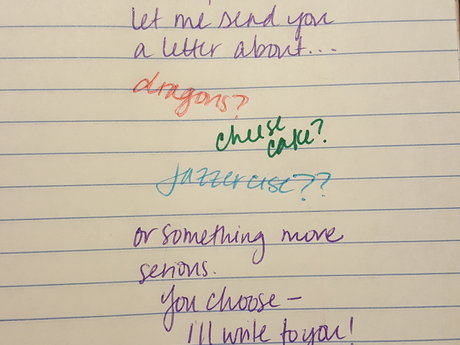 let me send you
a letter about...
dragons?
cheese
cake?
jazzercise??
or something more
serious.
You choose—
I'll write to you!